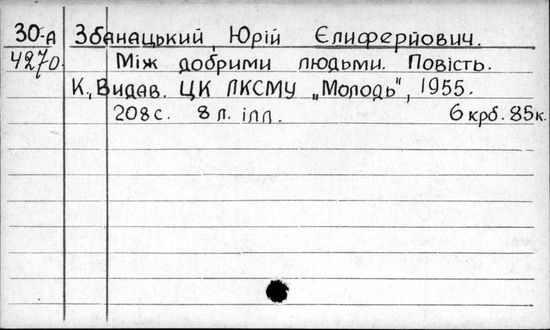 30-А Збанацький Юрій Єлиферйович.
4270. Між добрими людьми. Повість.
К., Видав. ЦК ЛКСМУ „Молодь", 1955.
208с. 8 л. ілл. 6 крб. 85к.